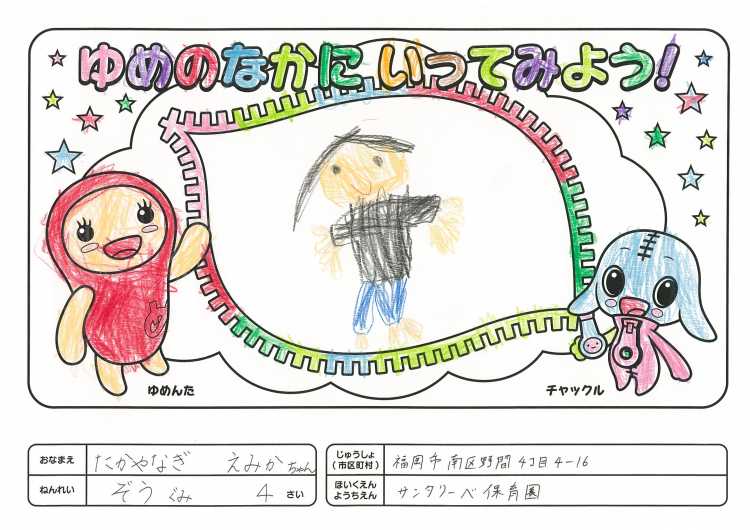 ゆめのなかに いってみよう!
ゆめんた
チャックル
おなまえ たかやなぎ えみかちゃん
ねんれい ぞうぐみ 4さい
じゅうしょ
(市区町村) 福岡市南区野間4丁目4-16
ほいくえん
ようちえん サンタリーベ保育園